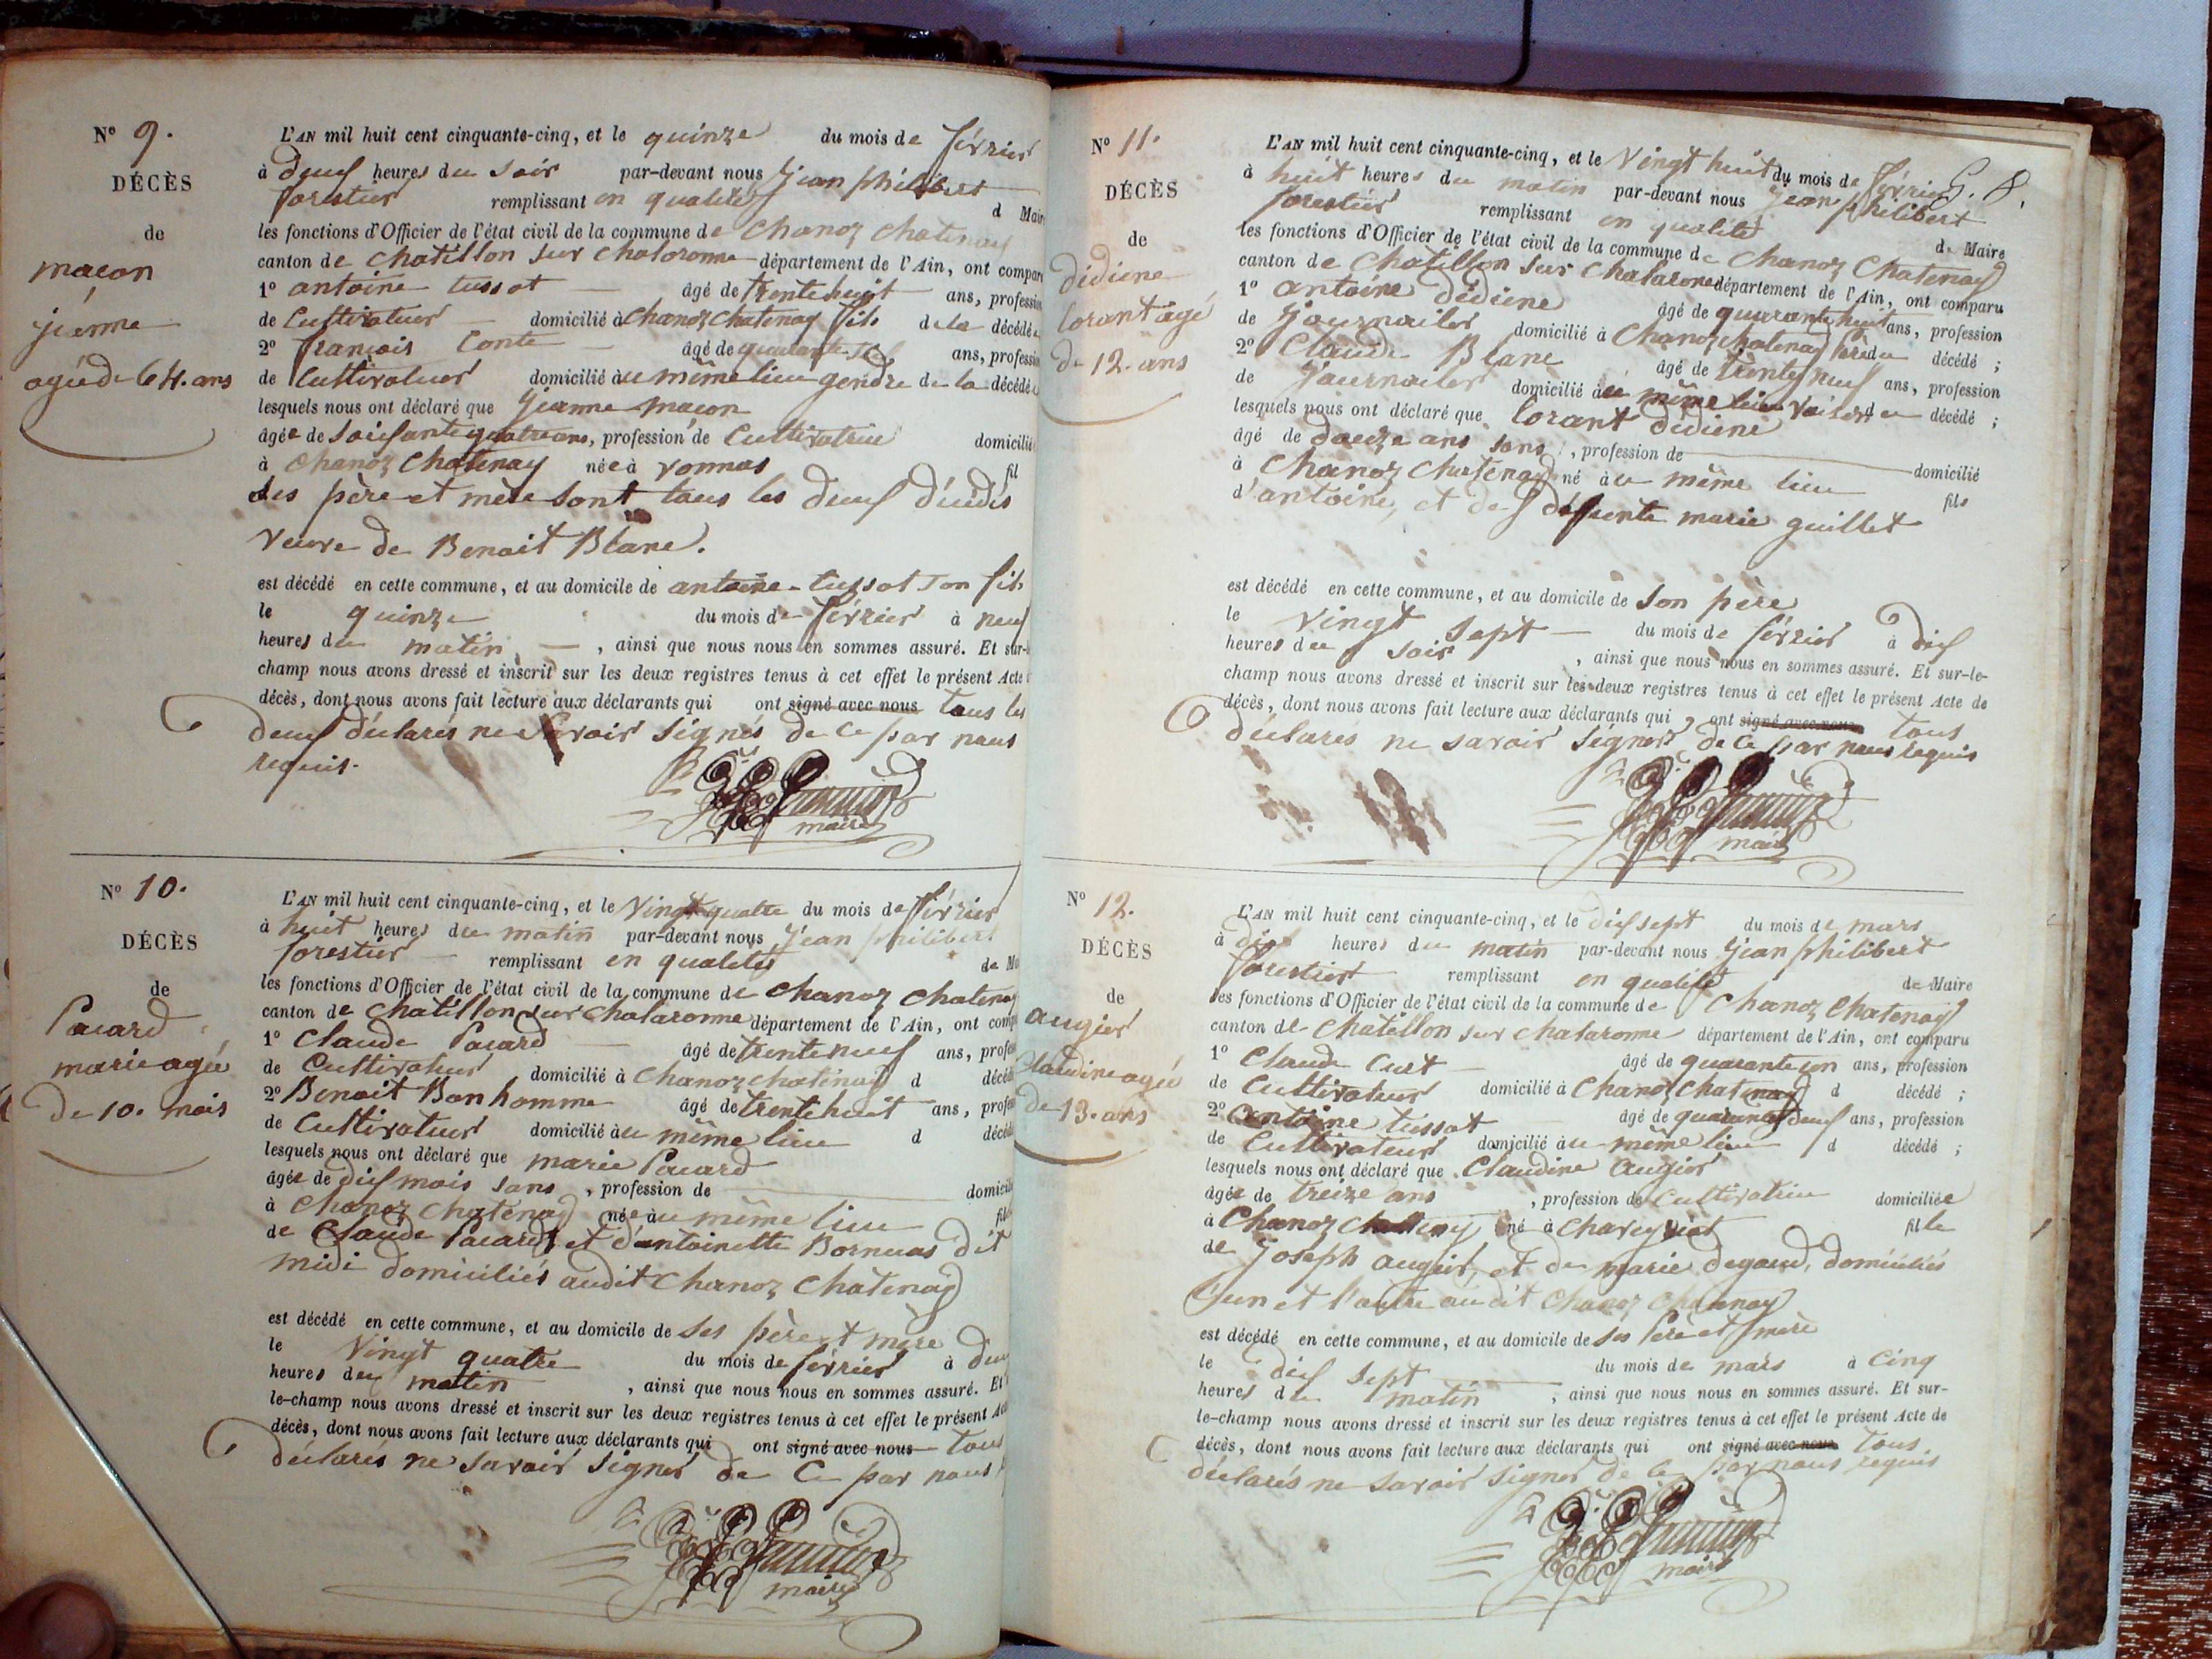 N° 9.
DÉCÈS
de
maçon
jeanne
agée de 64. ans
L'AN mil huit cent cinquante-cinq, et le quinze du mois de février
à deux heures du soir par-devant nous jean philibert
forestier remplissant en qualité d Maire
les fonctions d'Officier de l'état civil de la commune de Chanoz Chatenay
canton de chatillon sur chalaronne département de l'Ain, ont comparu
1° antoine tussot âgé de trente huit ans, profession
de Cultivateur domicilié à Chanoz Chatenay fils de la décédée
2° françois Conte âgé de quarante ans, profession
de Cultivateur domicilié au même lieu gendre de la décédée
lesquels nous ont déclaré que jeanne maçon
âgée de soixante quatre ans, profession de Cultivatrice domicilié
à Chanoz Chatenay née à vonnas fil
des père et mère sont tous les deux décédés
veuve de Benoit Blanc.
est décédé en cette commune, et au domicile de antoine tussot son fils
le quinze du mois de février à neuf
heures du matin, ainsi que nous nous en sommes assuré. Et sur-le-
champ nous avons dressé et inscrit sur les deux registres tenus à cet effet le présent Acte
décès, dont nous avons fait lecture aux déclarants qui ont signé avec nous tous les
deux déclarés ne savoir signés de ce par nous
requis.
maire
N° 10.
DÉCÈS
de
Pacard
marie agée
de 10. mois
L'AN mil huit cent cinquante-cinq, et le Vingt quatre du mois de février
à huit heures du matin par-devant nous jean philibert
forestier remplissant en qualités de
les fonctions d'Officier de l'état civil de la commune de Chanoz Chatenay
canton de chatillon sur chalaronne département de l'Ain, ont comparu
1° Claude Pacard âgé de trente neuf ans, profession
de Cultivateur domicilié à Chanoz chatenay d décédé
2° Benoit Bonhomme âgé de trente huit ans, profession
de Cultivateur domicilié au même lieu d décédé
lesquels nous ont déclaré que marie Pacard
âgée de dix mois sans, profession de domicilié
à Chanoz Chatenay née au même lieu fille
de Claude Pacard et d'antoinette Bornuas dit
midi domiciliés audit Chanoz Châtenay
est décédé en cette commune, et au domicile de ses père et mère
le Vingt quatre du mois de février à deux
heures du matin, ainsi que nous nous en sommes assuré. Et
le-champ nous avons dressé et inscrit sur les deux registres tenus à cet effet le présent Acte
décès, dont nous avons fait lecture aux déclarants qui ont signé avec nous tous
déclarés ne savoir signer de ce par nous
maire
N° 11.
DÉCÈS
de
didiene
lorant agé
de 12. ans
L'AN mil huit cent cinquante-cinq, et le Vingt huit du mois de février
à huit heures du matin par-devant nous jean philibert
forestier remplissant en qualité de Maire
les fonctions d'Officier de l'état civil de la commune de Chanoz Chatenay
canton de chatillon sur chalarone département de l'Ain, ont comparu
1° antoine didiene âgé de quarante huit ans, profession
de journalier domicilié à Chanoz chatenay père du décédé ;
2° Claude Blanc âgé de trente neuf ans, profession
de journalier domicilié au même lieu voisin du décédé ;
lesquels nous ont déclaré que lorant didiene
âgé de douze ans sans, profession de domicilié
à Chanoz Chatenay né au même lieu fils
d'antoine, et de deffunte marie guillet
est décédé en cette commune, et au domicile de son père
le vingt sept du mois de février à dix
heures du soir, ainsi que nous nous en sommes assuré. Et sur-le-
champ nous avons dressé et inscrit sur les deux registres tenus à cet effet le présent Acte de
décès, dont nous avons fait lecture aux déclarants qui ont signé avec nous tous
déclarés ne savoir signer de ce par nous requis
maire
N° 12.
DÉCÈS
de
augier
Claudine agée
de 13. ans
L'AN mil huit cent cinquante-cinq, et le dix sept du mois de mars
à dix heures du matin par-devant nous jean philibert
forestier remplissant en qualité de Maire
les fonctions d'Officier de l'état civil de la commune de Chanoz Chatenay
canton de chatillon sur chalaronne département de l'Ain, ont comparu
1° Claude Curt âgé de quarante un ans, profession
de Cultivateur domicilié à Chanoz Chatenay d décédé ;
2° antoine tussot âgé de quarante deux ans, profession
de Cultivateur domicilié au même lieu d décédé ;
lesquels nous ont déclaré que Claudine augier
âgée de treize ans, profession de Cultivatrice domiciliée
à Chanoz Chatenay né à Chaveyriat fille
de joseph augier, et de marie degand, domiciliés
l'un et l'autre au dit Chanoz Chatenay
est décédé en cette commune, et au domicile de ses père et mère
le dix sept du mois de mars à cinq
heures du matin, ainsi que nous nous en sommes assuré. Et sur-
le-champ nous avons dressé et inscrit sur les deux registres tenus à cet effet le présent Acte de
décès, dont nous avons fait lecture aux déclarants qui ont signé avec nous tous
déclarés ne savoir signer de ce par nous requis
maire